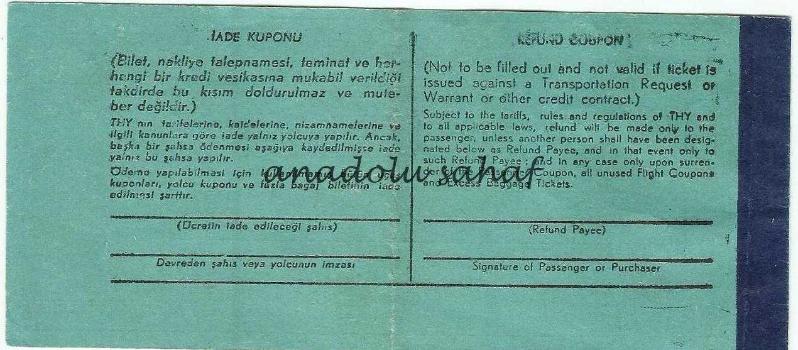 İADE KUPONU
(Bilet, nakliye talepnamesi, teminat ve her-
hangi bir kredi vesikasına mukabil verildiği
takdirde bu kısım doldurulmaz ve mute-
ber değildir.)
THY nın tarifelerine, kaidelerine, nizamnamelerine ve
ilgili kanunlara göre iade yalnız yolcuya yapılır. Ancak,
başka bir şahsa ödenmesi aşağıya kaydedilmişse iade
yalnız bu şahsa yapılır.
Ödeme yapılabilmesi için
kuponları, yolcu kuponu ve fazla bagaj biletinin iade
edilmesi şarttır.
(Ücretin iade edileceği şahıs)
Devreden şahıs veya yolcunun imzası
REFUND COUPON
(Not to be filled out and not valid if ticket is
issued against a Transportation Request or
Warrant or other credit contract.)
Subject to the tariffs, rules and regulations of THY and
to all applicable laws, refund will be made only to the
passenger, unless another person shall have been desig-
nated below as Refund Payee, and in that event only to
such Refund Payee; and in any case only upon surren-
der Coupon, all unused Flight Coupons
and Excess Baggage Tickets.
(Refund Payee)
Signature of Passenger or Purchaser
anadolu sahaf